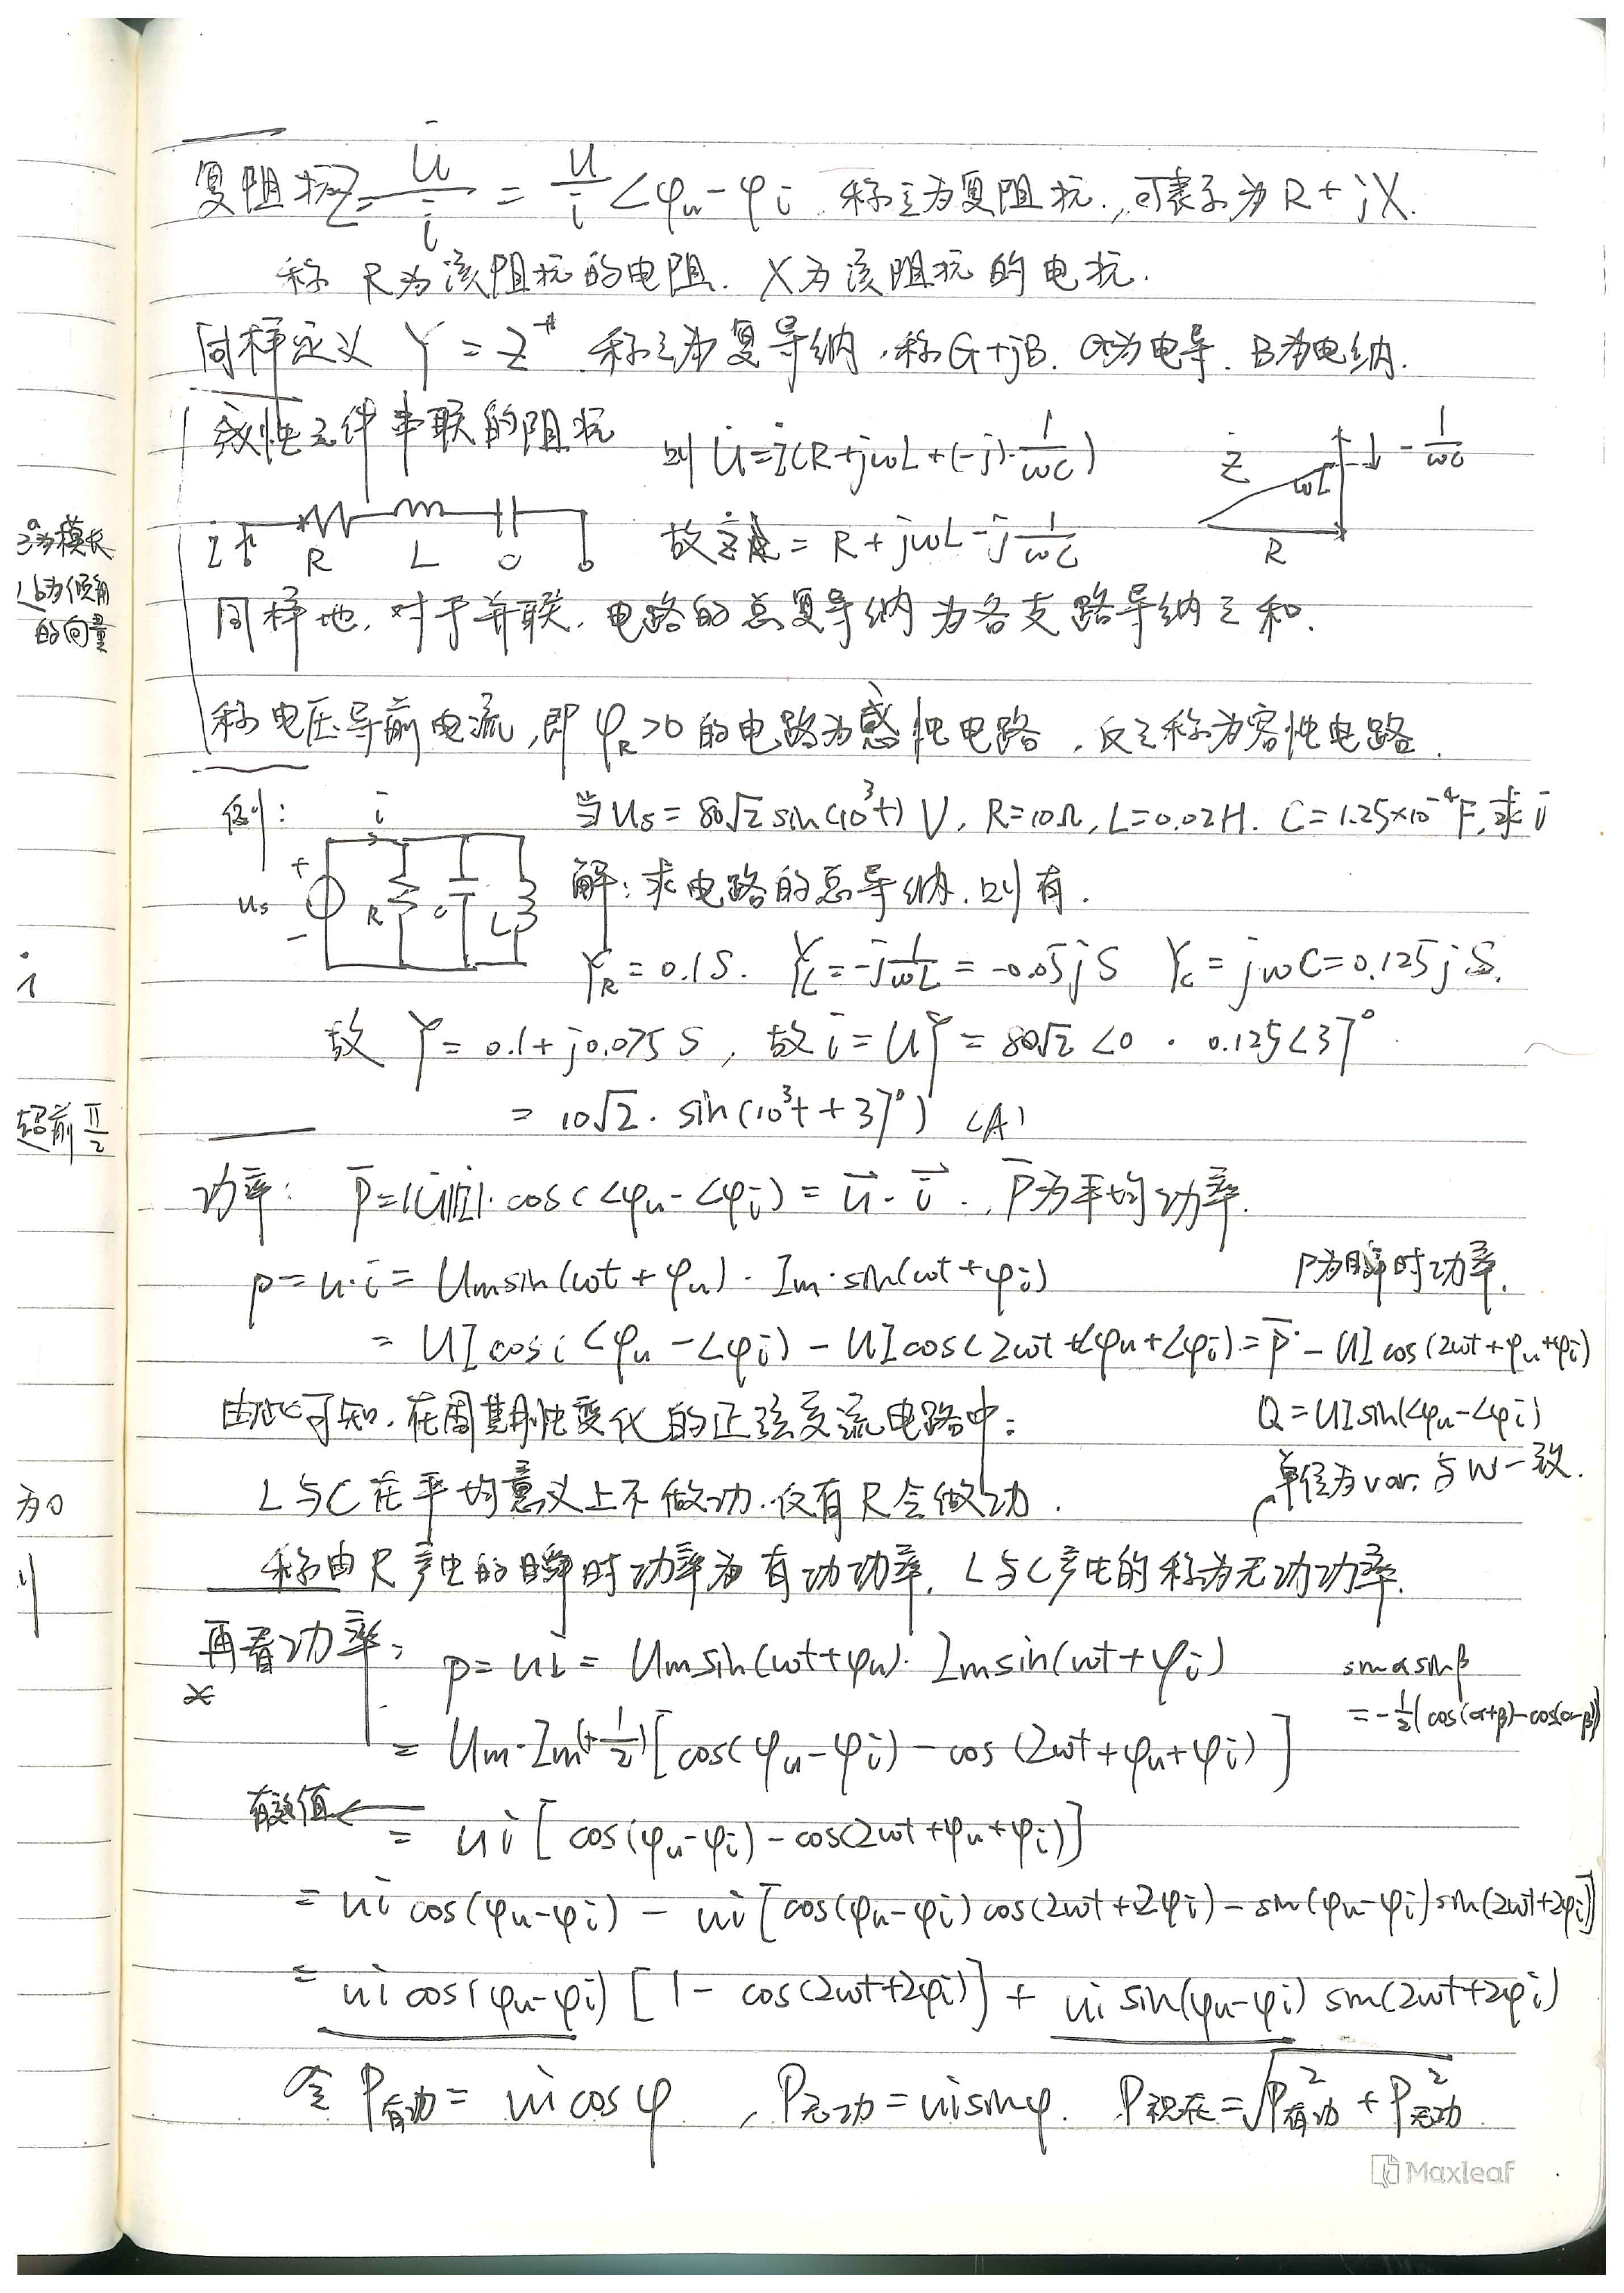 复阻抗Z = U̇/İ = U/I ∠φu-φi 称之为复阻抗,可表示为 R + jX.
称 R为该阻抗的电阻. X为该阻抗的电抗.
同样定义 Y = Z⁻¹ 称之为复导纳,称G+jB. G为电导. B为电纳.
感性元件串联的阻抗 则 U̇=İ(R+jωL+(-j)·1/ωC)
Ż ωL -1/ωC R
İ R L C 故Ż = R + jωL - j 1/ωC
同样地,对于并联,电路的总复导纳为各支路导纳之和.
称电压导前电流,即φR>0的电路为感性电路,反之称为容性电路.
例: i 当Us = 80√2 sin(10³t) V, R=10Ω, L=0.02H. C=1.25×10⁻⁴F,求i
us + - R C L 解:求电路的总导纳.则有.
YR = 0.1S. YL=-j 1/ωL = -0.05j S Yc = jωC=0.125j S.
故 Y = 0.1+j0.075 S, 故i = UY = 80√2 ∠0 · 0.125∠37°
= 10√2 · sin(10³t + 37°) (A)
功率: P̄=|U̇||İ|·cos(∠φu-∠φi) = u⃗·i⃗. P̄为平均功率.
p = u·i = Um sin(ωt + φu) · Im·sin(ωt+φi) P为瞬时功率.
= UI cos(∠φu-∠φi) - UI cos(2ωt+∠φu+∠φi) = P̄ - UI cos(2ωt+φu+φi)
由此可知.在周期性变化的正弦交流电路中: Q = UI sin(∠φu-∠φi)
L与C在平均意义上不做功.仅有R会做功. 单位为var.与W一致.
称由R产生的瞬时功率为有功功率. L与C产生的称为无功功率.
再看功率: p= ui = Um sin(ωt+φu)· Im sin(ωt+φi) sinαsinβ
= Um·Im(+1/2)[cos(φu-φi) - cos(2ωt+φu+φi)] = -1/2(cos(α+β)-cos(α-β))
有效值← = ui[cos(φu-φi)-cos(2ωt+φu+φi)]
= ui cos(φu-φi) - ui[cos(φu-φi)cos(2ωt+2φi) - sin(φu-φi)sin(2ωt+2φi)]
= ui cos(φu-φi)[1 - cos(2ωt+2φi)] + ui sin(φu-φi) sin(2ωt+2φi)
令 P有功= ui cosφ , P无功=ui sinφ. P视在=√(P有功² + P无功²)
Maxleaf
为模长
为倾角
的向量
i
超前 π/2
为0